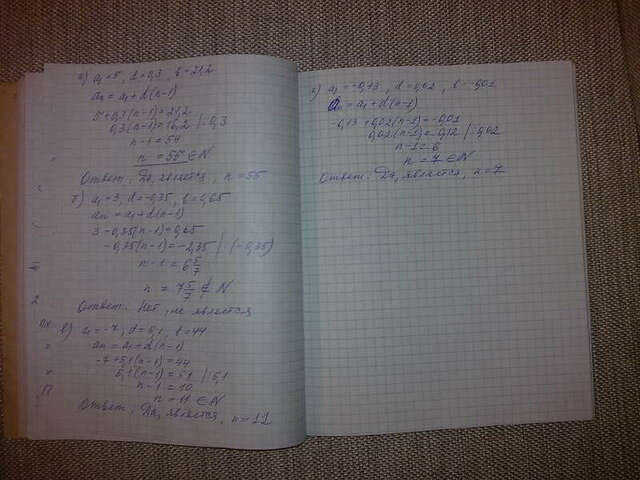 а) a₁=5, d=0,3, b=21,2
an = a₁+d(n-1)
5+0,3(n-1)=21,2
0,3(n-1)=16,2 | :0,3
n-1=54
n = 55 ∈ N
Ответ: Да, является, n=55
б) a₁=3, d=-0,35, b=0,65
an = a₁+d(n-1)
3-0,35(n-1)=0,65
-0,35(n-1)=-2,35 | :(-0,35)
n-1=6 5/7
n = 7 5/7 ∉ N
Ответ: Нет, не является
в) a₁=-7, d=5,1, b=44
an = a₁+d(n-1)
-7+5,1(n-1)=44
5,1(n-1)=51 | :5,1
n-1=10
n=11 ∈ N
Ответ: Да, является, n=12
a₁=-0,13, d=0,02, b=-0,01
an=a₁+d(n-1)
-0,13+0,02(n-1)=-0,01
0,02(n-1)=0,12 | :0,02
n-1=6
n=7 ∈ N
Ответ: Да, является, n=7